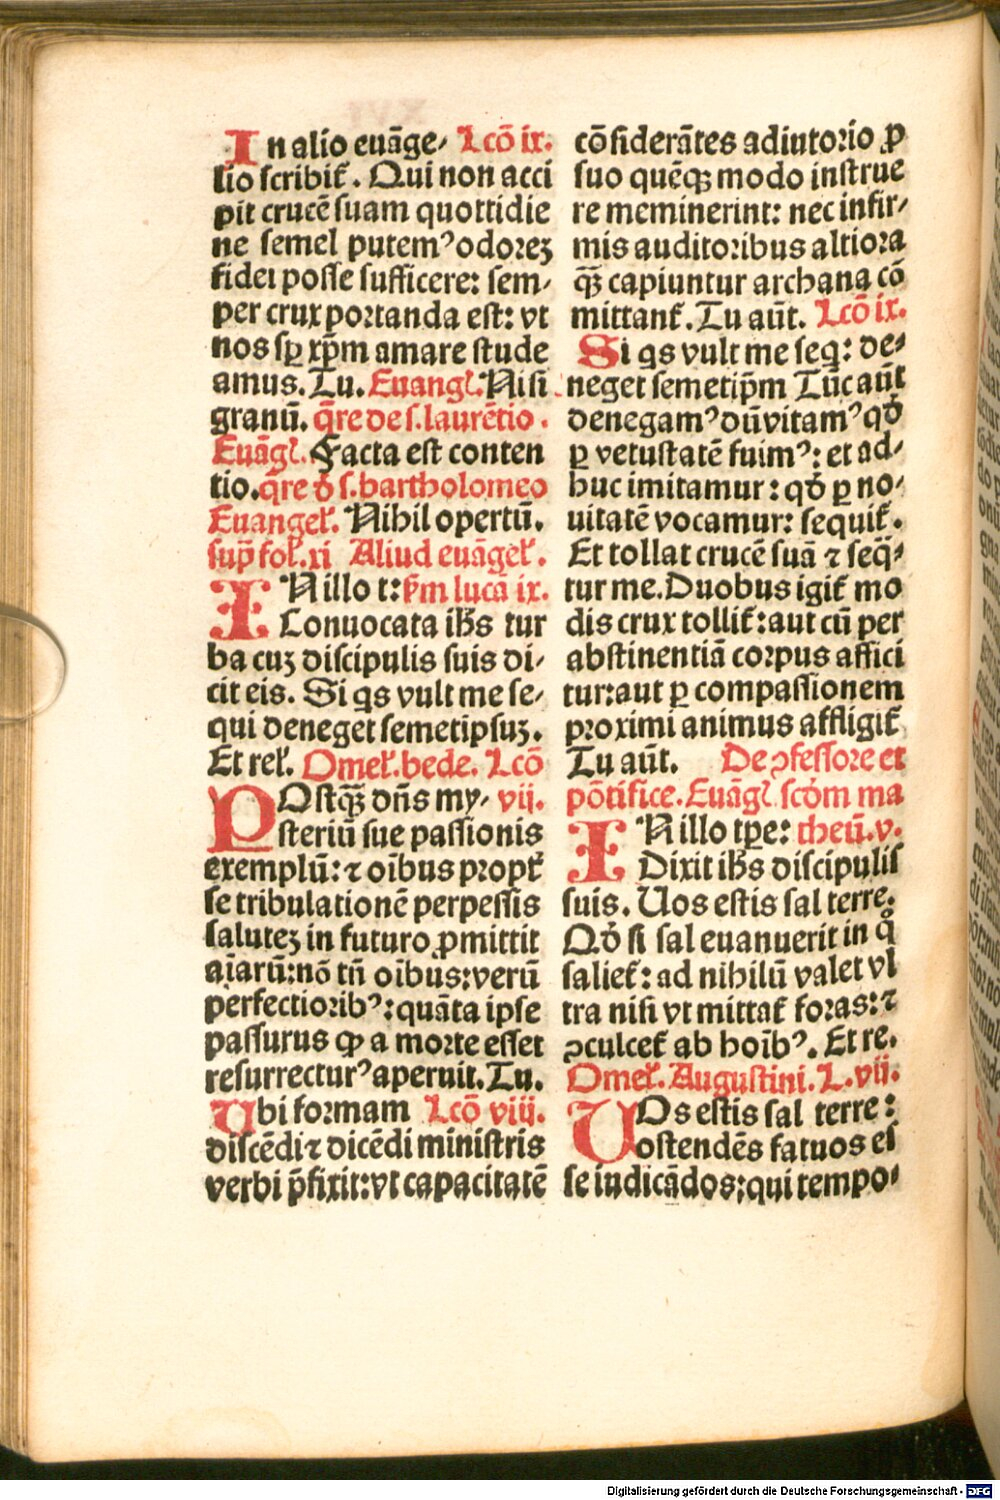 In alio euāge⸗ Lcō ix.
lio scribit᷑. Qui non acci
pit crucē suam quottidie
ne semel putemꝰ odoreꝫ
fidei posse sufficere: sem⸗
per crux portanda est: vt
nos sꝑ xp̄m amare stude
amus. Tu. Euangl̓. Nisi
granū. q̄re de s. laurētio.
Euāgl̓. Facta est conten
tio. q̄re d̓ s. bartholomeo
Euangel̓. Nihil opertū.
sup̄ fol̓. xi Aliud euāgel̓.
IN illo t: ẜm lucā ix.
Conuocata ih̄s tur
ba cuꝫ discipulis suis di⸗
cit eis. Si qs vult me se⸗
qui deneget semetipsuꝫ.
Et rel̓. Omel̓. bede. Lcō
POstq̄ꝫ dn̄s my⸗ vii.
steriū sue passionis
exemplū: ⁊ oībus propt̓
se tribulationē perpessis
saluteꝫ in futuro ꝓmittit
aīarū: nō tn̄ oībus: verū
perfectioribꝰ: quāta ipse
passurus ꝙ a morte esset
resurrecturꝰ aperuit. Tu.
Ubi formam Lcō viii.
discēdi ⁊ dicēdi ministris
verbi p̄fixit: vt capacitatē
cōsiderātes adiutorio ꝓ
suo quēqꝫ modo instrue
re meminerint: nec infir⸗
mis auditoribus altiora
q̄ꝫ capiuntur archana cō
mittant᷑. Tu aūt. Lcō ix.
Si qs vult me seq: de⸗
neget semetip̄m Tūc aūt
denegamꝰ dū vitamꝰ qd̓
ꝑ vetustatē fuimꝰ: et ad⸗
huc imitamur: qd̓ ꝑ no⸗
uitatē vocamur: sequit᷑.
Et tollat crucē suā ⁊ seq̄⸗
tur me. Duobus igit᷑ mo
dis crux tollit᷑: aut cū per
abstinentiā corpus affici
tur: aut ꝑ compassionem
proximi animus affligit᷑
Tu aūt. De ꝯfessore et
pōtifice. Euāgl̓ scd̓m ma
IN illo tp̄e: theū. v.
Dixit ih̄s discipulis
suis. Uos estis sal terre.
Qd̓ si sal euanuerit in q̊
saliet᷑: ad nihilū valet vl
tra nisi vt mittat᷑ foras: ⁊
ꝯculcet᷑ ab hoībꝰ. Et re.
Omel̓. Augustini. L. vii.
UOs estis sal terre:
ostendēs fatuos es
se iudicādos: qui tempo⸗
Digitalisierung gefördert durch die Deutsche Forschungsgemeinschaft - DFG